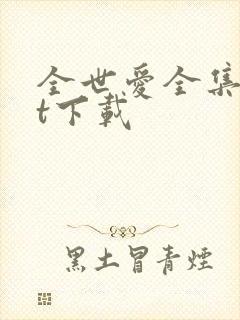 全世爱全集
t下载
黑土冒青煙